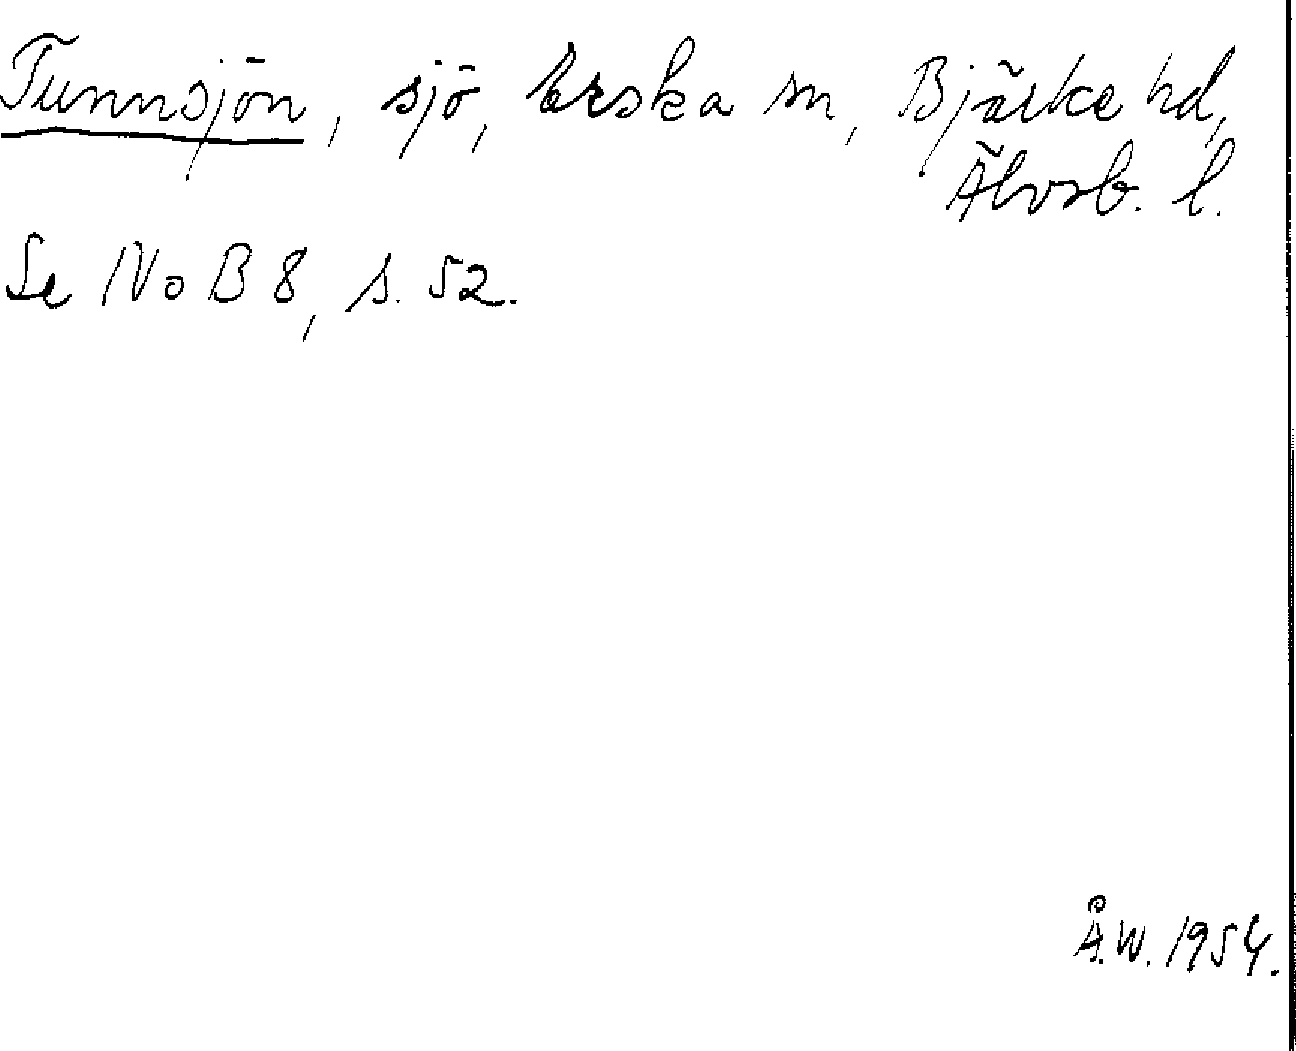 Tunnsjön, sjö, Erska sn, Bjärke hd,
Älvsb. l.
Se NoB 8, s. 52.
Å.W. 1954.